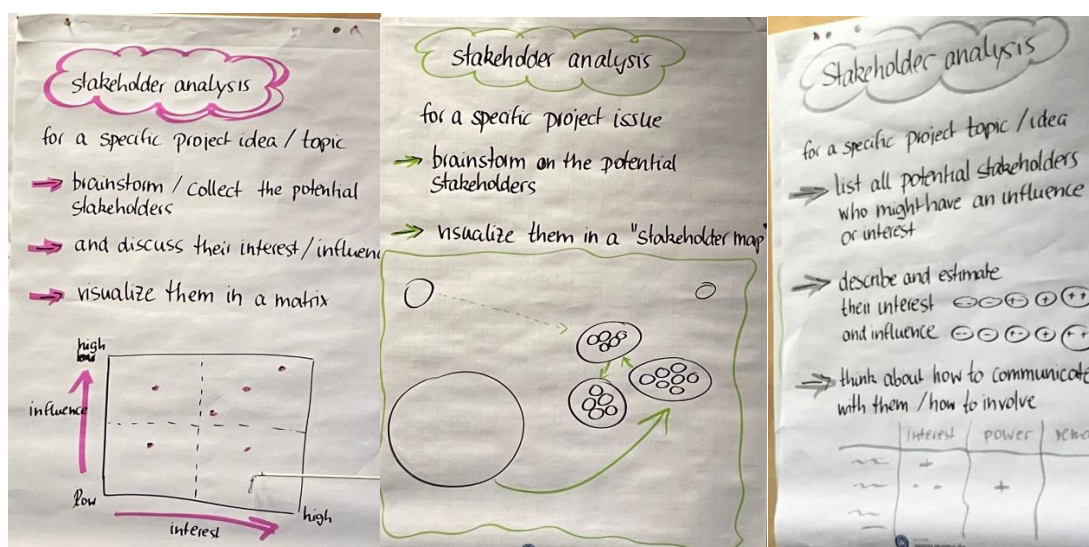 stakeholder analysis
for a specific project idea / topic
→ brainstorm / collect the potential
stakeholders
→ and discuss their interest / influen
→ visualize them in a matrix
high
influence
low
interest
high
stakeholder analysis
for a specific project issue
→ brainstorm on the potential
stakeholders
→ visualize them in a "stakeholder map"
Stakeholder analysis
for a specific project topic / idea
→ list all potential stakeholders
who might have an influence
or interest
→ describe and estimate
their interest (--) (-) (+-) (+) (++)
and influence (--) (-) (+-) (+) (++)
→ think about how to communicate
with them / how to involve
interest power rema
+
- - +